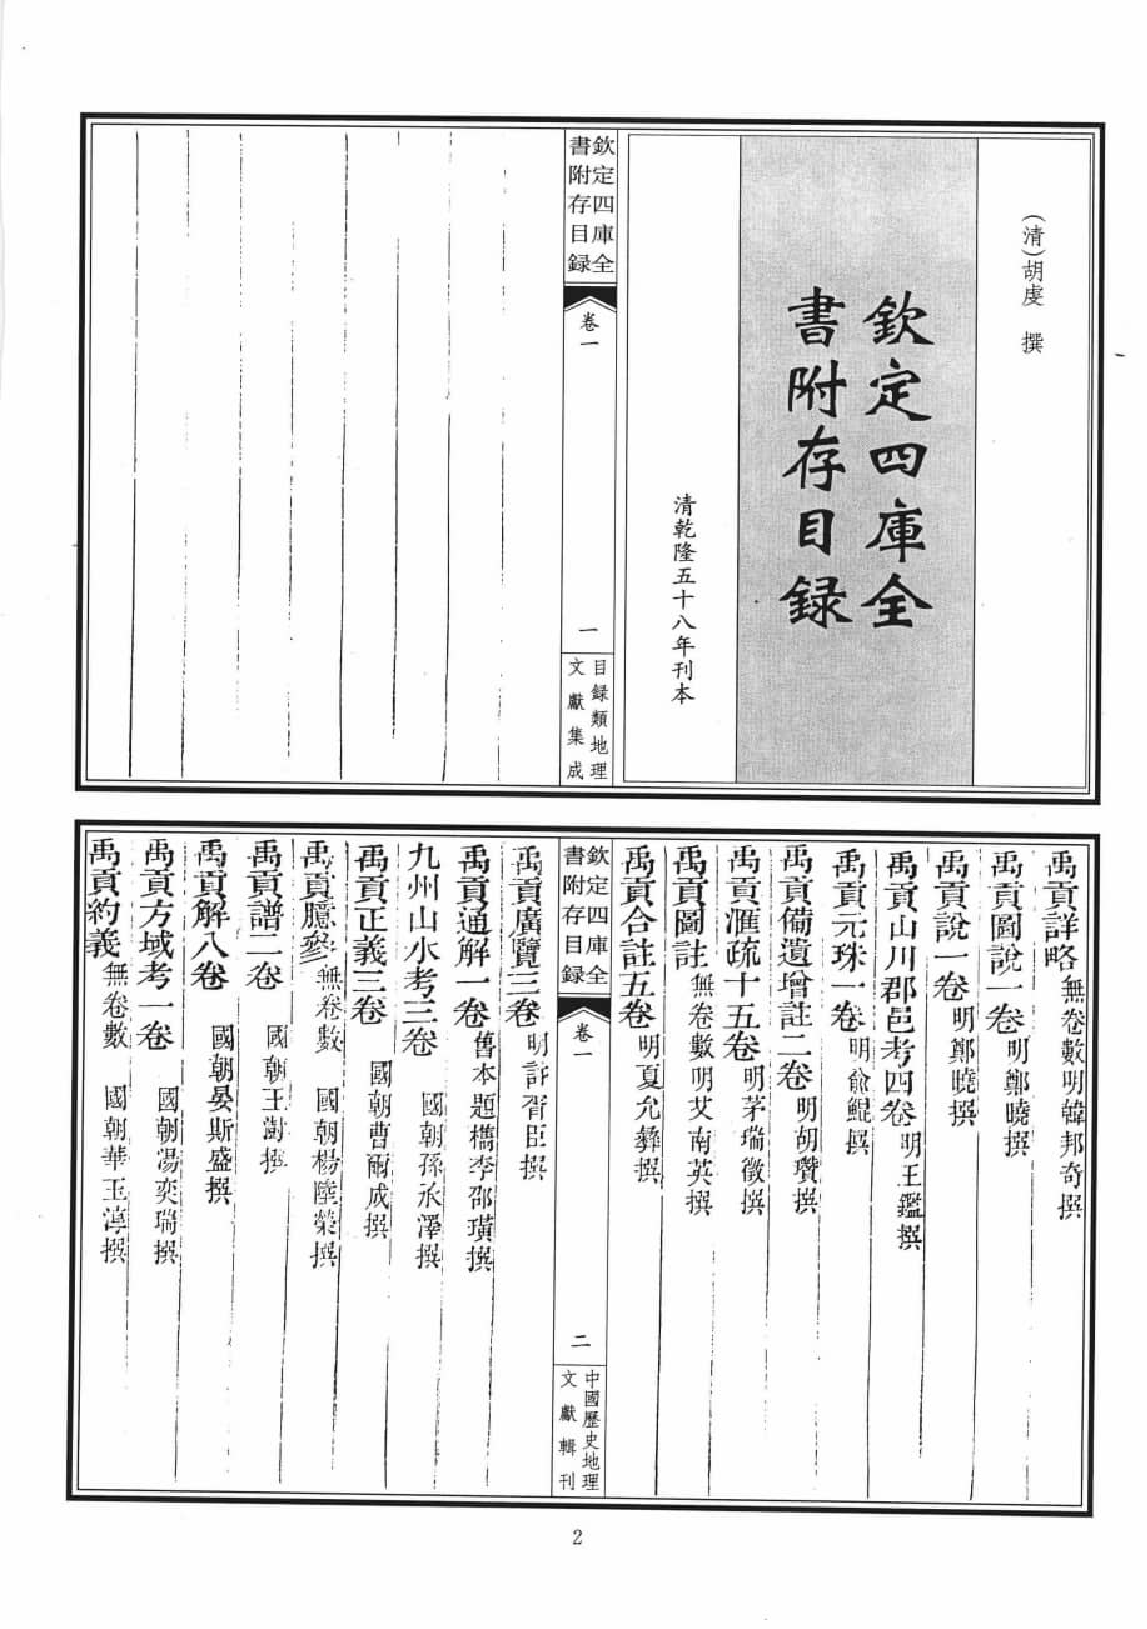 (清)胡虔 撰
欽定四庫全
書附存目録
清乾隆五十八年刊本
欽定四庫全
書附存目録
卷一
一
目録類地理
文獻集成
禹貢詳略無卷數明韓邦奇撰
禹貢圖說一卷明鄭曉撰
禹貢說一卷明鄭曉撰
禹貢山川郡邑考四卷明王鑑撰
禹貢元珠一卷明俞鯤撰
禹貢備遺增註二卷明胡瓚撰
禹貢滙疏十五卷明茅瑞徵撰
禹貢圖註無卷數明艾南英撰
禹貢合註五卷明夏允彝撰
欽定四庫全
書附存目録
卷一
二
中國歷史地理
文獻輯刊
禹貢廣覽三卷明許胥臣撰
禹貢通解一卷舊本題檇李邵璜撰
九州山水考三卷 國朝孫承澤撰
禹貢正義三卷 國朝曹爾成撰
禹貢臆參無卷數 國朝楊陸榮撰
禹貢譜二卷 國朝王澍撰
禹貢解八卷 國朝晏斯盛撰
禹貢方域考一卷 國朝湯奕瑞撰
禹貢約義無卷數 國朝華玉淳撰
2